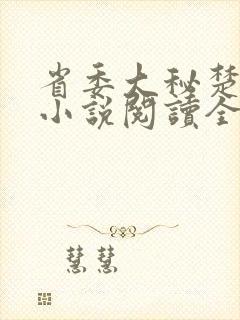 省委大秘楚
小说閱讀全
慧慧